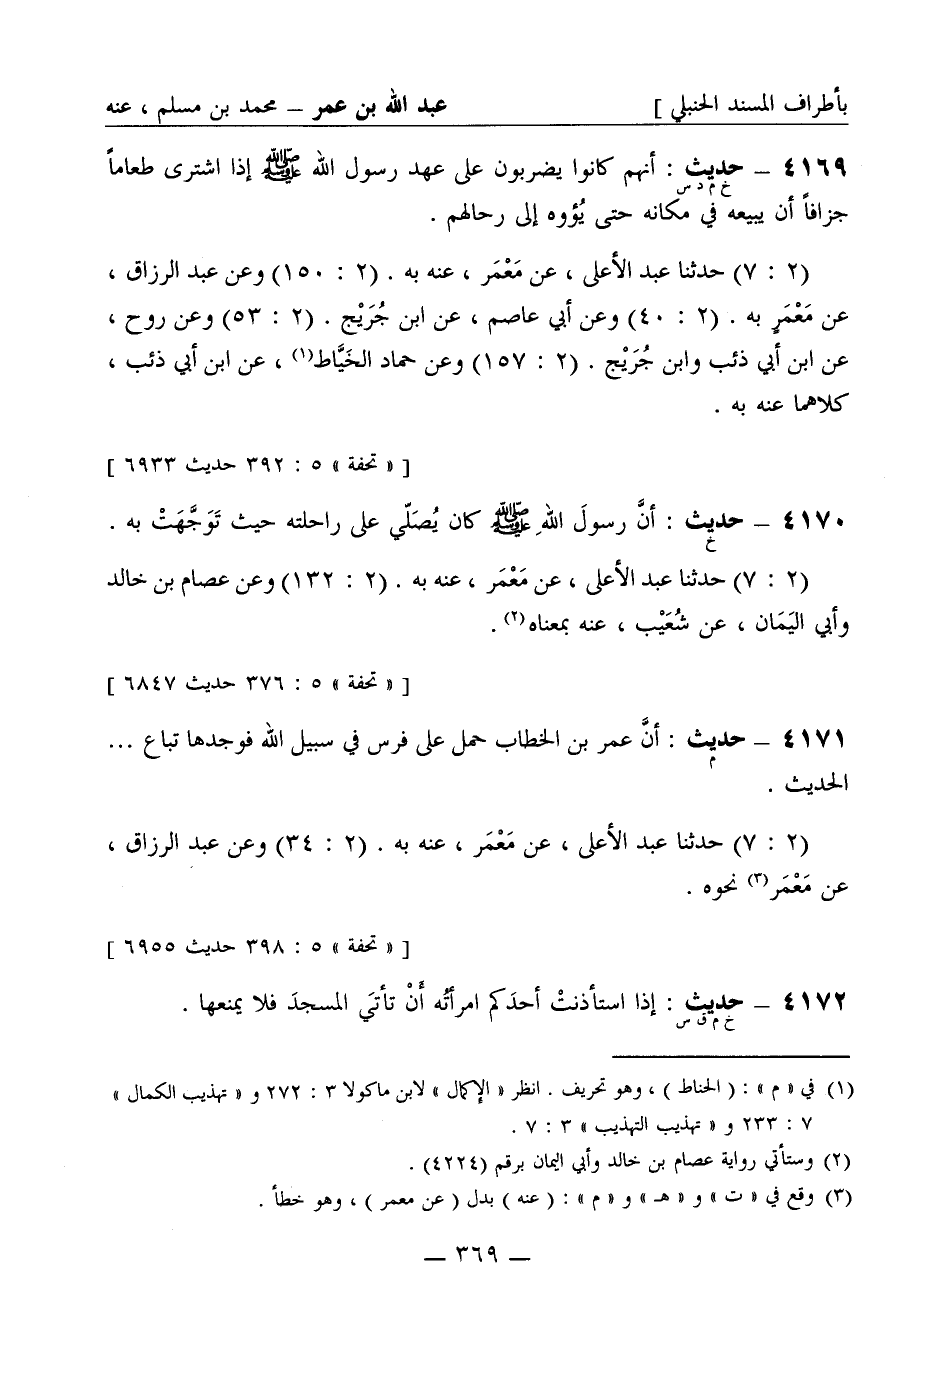 بأطراف المسند الحنبلي ] عبد الله بن عمر – محمد بن مسلم ، عنه
٤١٦٩ – حديث : أنهم كانوا يضربون على عهد رسول الله ﷺ إذا اشترى طعاماً
خ م د س
جزافاً أن يبيعه في مكانه حتى يُؤوه إلى رحالهم .
(٢ : ٧) حدثنا عبد الأعلى ، عن مَعْمَر ، عنه به . (٢ : ١٥٠) وعن عبد الرزاق ،
عن مَعْمَرٍ به . (٢ : ٤٠) وعن أبي عاصم ، عن ابن جُرَيْج . (٢ : ٥٣) وعن روح ،
عن ابن أبي ذئب وابن جُرَيْج . (٢ : ١٥٧) وعن حماد الخَيَّاط(١) ، عن ابن أبي ذئب ،
كلاهما عنه به .
[ « تحفة » ٥ : ٣٩٢ حديث ٦٩٣٣ ]
٤١٧٠ – حديث : أنَّ رسولَ اللهِ ﷺ كان يُصَلّي على راحلته حيث تَوَجَّهَتْ به .
خ
(٢ : ٧) حدثنا عبد الأعلى ، عن مَعْمَر ، عنه به . (٢ : ١٣٢) وعن عصام بن خالد
وأبي اليَمَان ، عن شُعَيْب ، عنه بمعناه(٢) .
[ « تحفة » ٥ : ٣٧٦ حديث ٦٨٤٧ ]
٤١٧١ – حديث : أنَّ عمر بن الخطاب حمل على فرس في سبيل الله فوجدها تباع ...
م
الحديث .
(٢ : ٧) حدثنا عبد الأعلى ، عن مَعْمَر ، عنه به . (٢ : ٣٤) وعن عبد الرزاق ،
عن مَعْمَر(٣) نحوه .
[ « تحفة » ٥ : ٣٩٨ حديث ٦٩٥٥ ]
٤١٧٢ – حديث : إذا استأذنتْ أحدَكم امرأتُه أَنْ تأتَي المسجدَ فلا يمنعها .
خ م ق س
(١) في « م » : ( الحناط ) ، وهو تحريف . انظر « الإكمال » لابن ماكولا ٣ : ٢٧٢ و « تهذيب الكمال »
٧ : ٢٣٣ و « تهذيب التهذيب » ٣ : ٧ .
(٢) وستأتي رواية عصام بن خالد وأبي اليمان برقم (٤٢٢٤) .
(٣) وقع في « ت » و « هـ » و « م » : ( عنه ) بدل ( عن معمر ) ، وهو خطأ .
– ٣٦٩ –